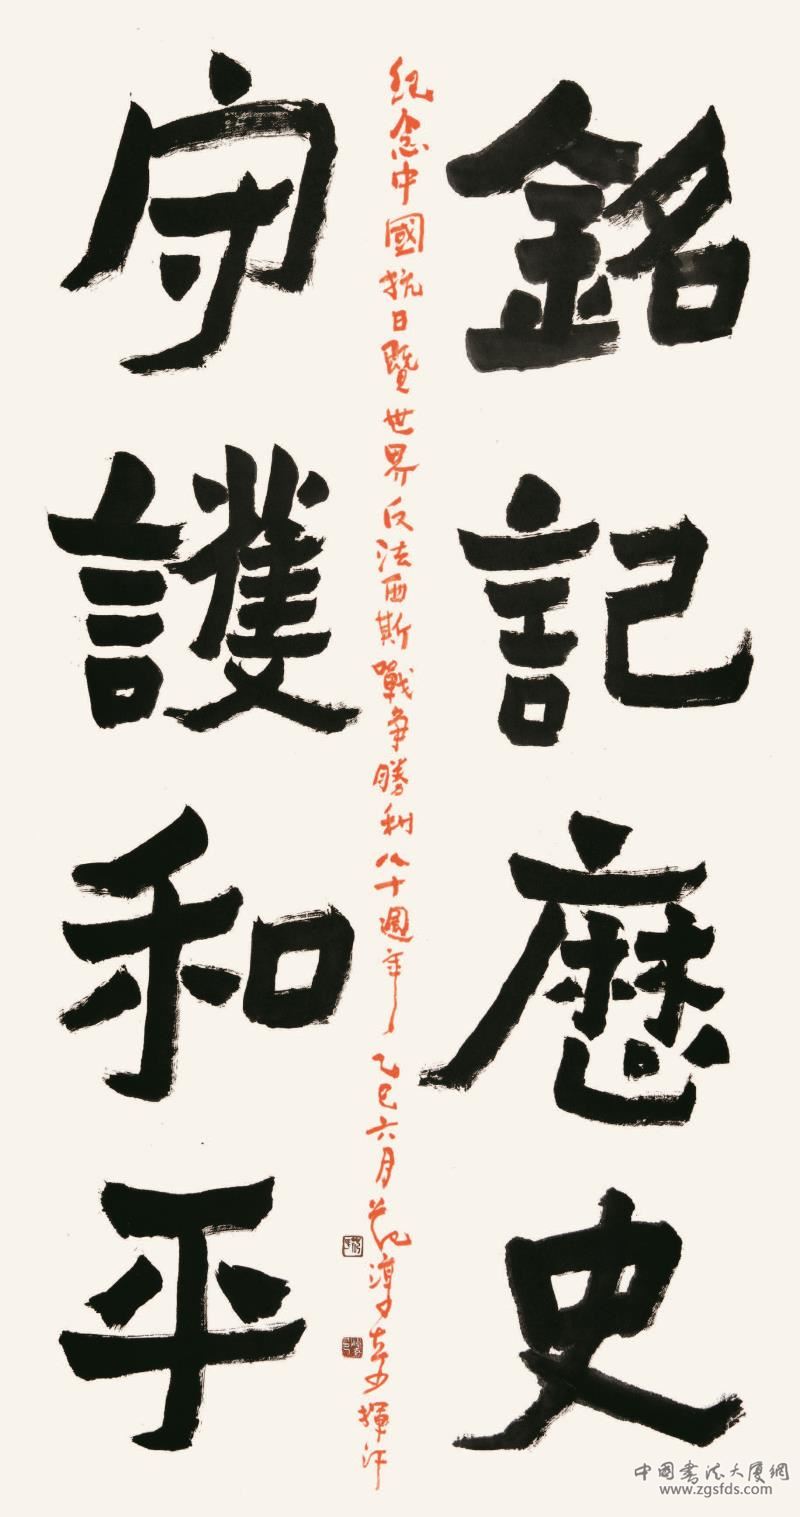 銘記歷史
紀念中國抗日暨世界反法西斯戰争勝利八十週年 乙巳六月范淳奇揮汗
守護和平
中國書法大廈網
www.zgsfds.com